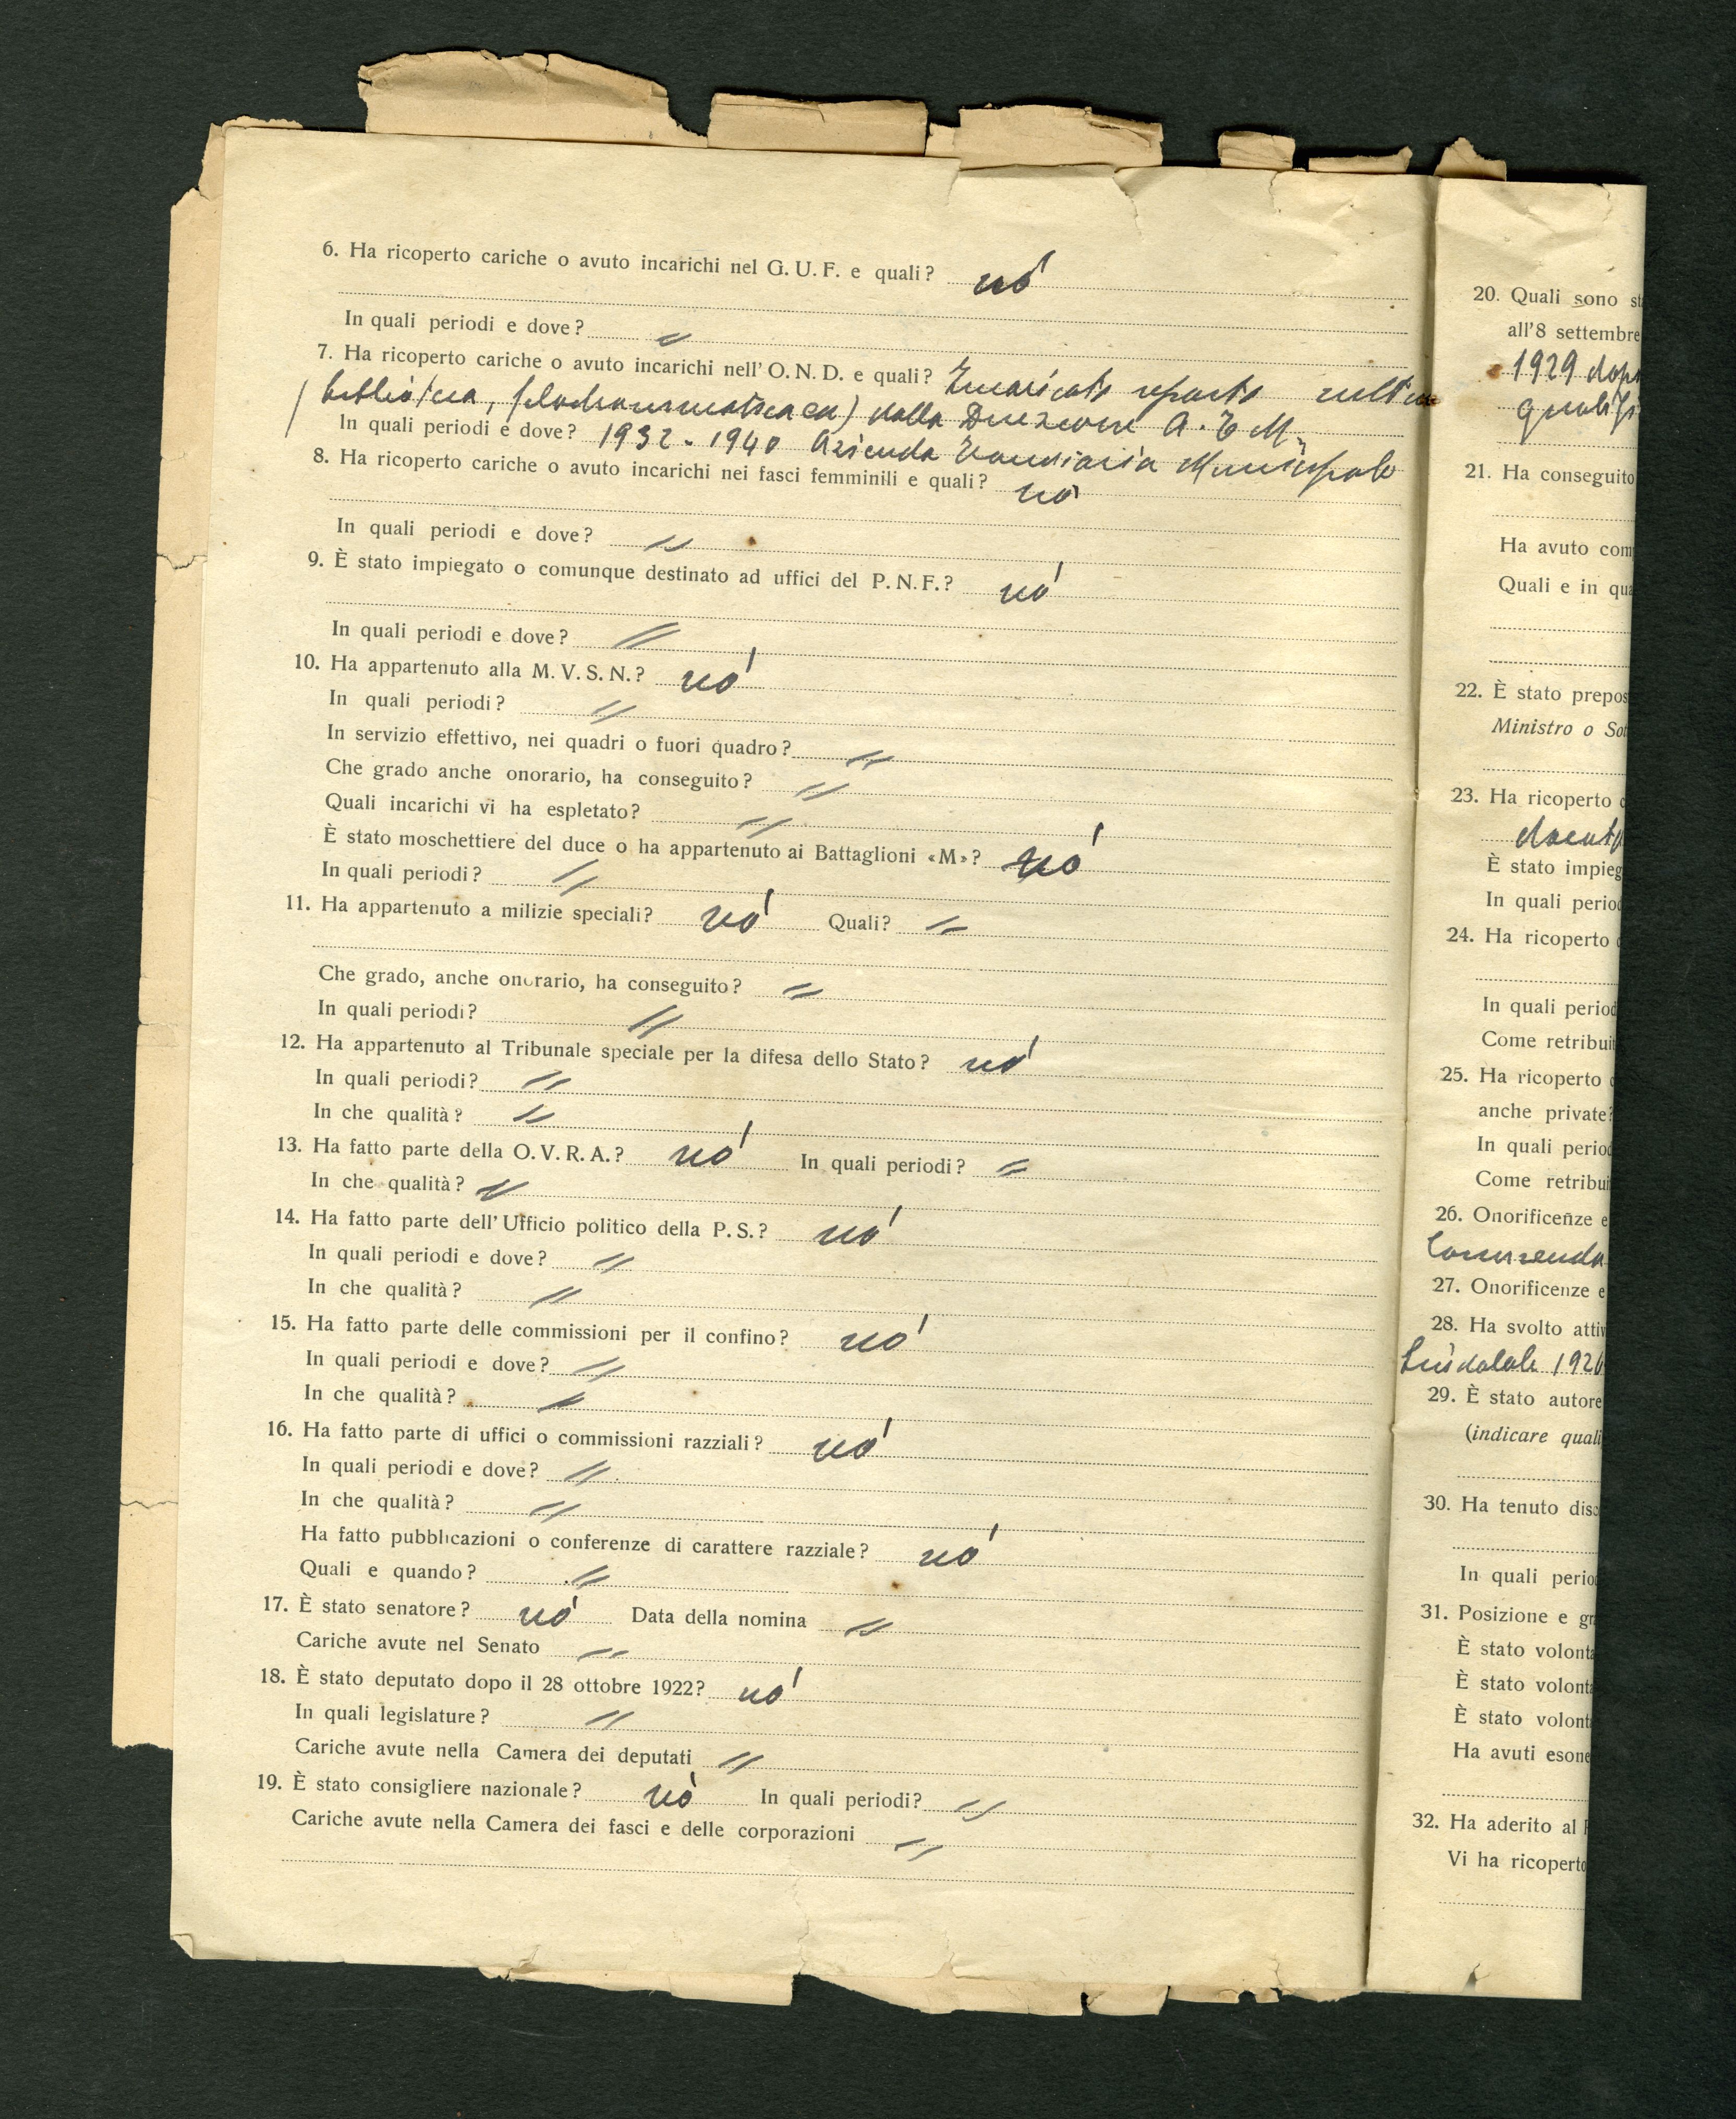 6. Ha ricoperto cariche o avuto incarichi nel G. U. F. e quali? nó
In quali periodi e dove? 〃
7. Ha ricoperto cariche o avuto incarichi nell' O. N. D. e quali? Incaricato reparto
(biblioteca, filodrammatica ecc) dalla Direzione A. T. M.
In quali periodi e dove? 1932 - 1940 Azienda Tranviaria Municipale
8. Ha ricoperto cariche o avuto incarichi nei fasci femminili e quali? nó
In quali periodi e dove? 〃
9. È stato impiegato o comunque destinato ad uffici del P. N. F.? nó
In quali periodi e dove? 〃
10. Ha appartenuto alla M. V. S. N.? nó
In quali periodi? 〃
In servizio effettivo, nei quadri o fuori quadro? 〃
Che grado anche onorario, ha conseguito? 〃
Quali incarichi vi ha espletato? 〃
È stato moschettiere del duce o ha appartenuto ai Battaglioni «M»? nó
In quali periodi? 〃
11. Ha appartenuto a milizie speciali? nó Quali? 〃
Che grado, anche onorario, ha conseguito? 〃
In quali periodi? 〃
12. Ha appartenuto al Tribunale speciale per la difesa dello Stato? nó
In quali periodi? 〃
In che qualità? 〃
13. Ha fatto parte della O. V. R. A.? nó In quali periodi? 〃
In che qualità? 〃
14. Ha fatto parte dell' Ufficio politico della P. S.? nó
In quali periodi e dove? 〃
In che qualità? 〃
15. Ha fatto parte delle commissioni per il confino? nó
In quali periodi e dove? 〃
In che qualità? 〃
16. Ha fatto parte di uffici o commissioni razziali? nó
In quali periodi e dove? 〃
In che qualità? 〃
Ha fatto pubblicazioni o conferenze di carattere razziale? nó
Quali e quando? 〃
17. È stato senatore? nó Data della nomina 〃
Cariche avute nel Senato 〃
18. È stato deputato dopo il 28 ottobre 1922? nó
In quali legislature? 〃
Cariche avute nella Camera dei deputati 〃
19. È stato consigliere nazionale? nó In quali periodi? 〃
Cariche avute nella Camera dei fasci e delle corporazioni 〃
20. Quali sono st
all'8 settembre
1929 dopo
21. Ha conseguito
Ha avuto com
Quali e in qua
22. È stato prepos
Ministro o Sot
23. Ha ricoperto
È stato impieg
In quali period
24. Ha ricoperto
In quali period
Come retribuit
25. Ha ricoperto
anche private?
In quali period
Come retribui
26. Onorificenze e
Commenda
27. Onorificenze e
28. Ha svolto attiv
Sindacale 1926
29. È stato autore
(indicare quali
30. Ha tenuto disc
In quali perio
31. Posizione e gr
È stato volonta
È stato volonta
È stato volont
Ha avuti esone
32. Ha aderito al
Vi ha ricoperto